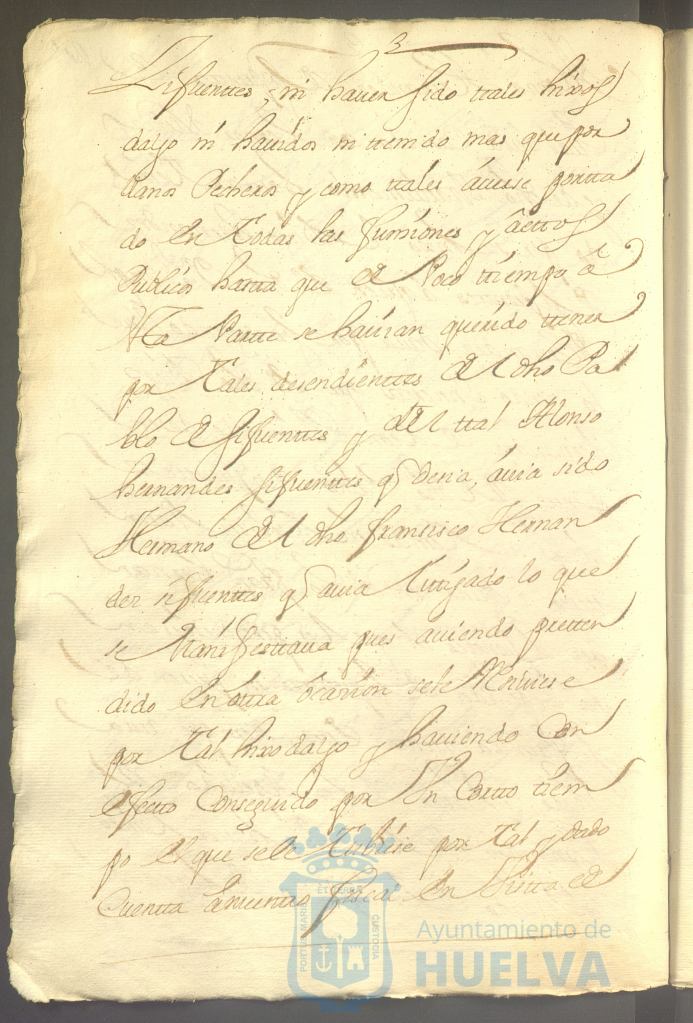 3
Sifuenttes, ni haver sido ttales hixos
dalgo ni havidos ni ttenido mas que por
llanos Pecheros y como ttales averse portta
do en ttodas las funsiones y actos
Publicos hasta que de Poco ttiempo â
estta Partte se havian querido ttener
por ttales desendienttes del dho Pa
blo de Sifuenttes y del ttal Alonso
hernandes Sifuenttes q desia, avia sido
Hermano del dho fransisco Hernan
des sifuenttes q avia littigado lo que
se Manifesttava pues aviendo pretten
dido en ottra ocasion se le Resiviese
por ttal hixodalgo y haviendo Con
efecto Conseguido por Un Cortto tiem
po el que se le ttubiese por ttal y dado
Cuentta a nuestro fiscal en Vistta de
Ayuntamiento de
HUELVA
PORTUS MARIS
ET TERRÆ
CUSTODIA